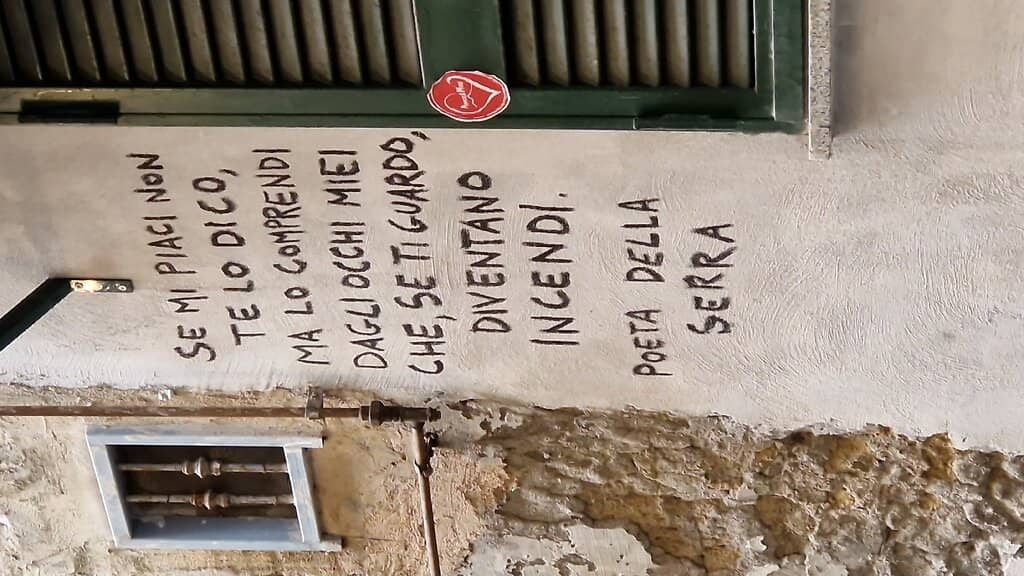 SE MI PIACI NON
TE LO DICO,
MA LO COMPRENDI
DAGLI OCCHI MIEI
CHE, SE TI GUARDO,
DIVENTANO
INCENDI.
POETA DELLA
SERRA